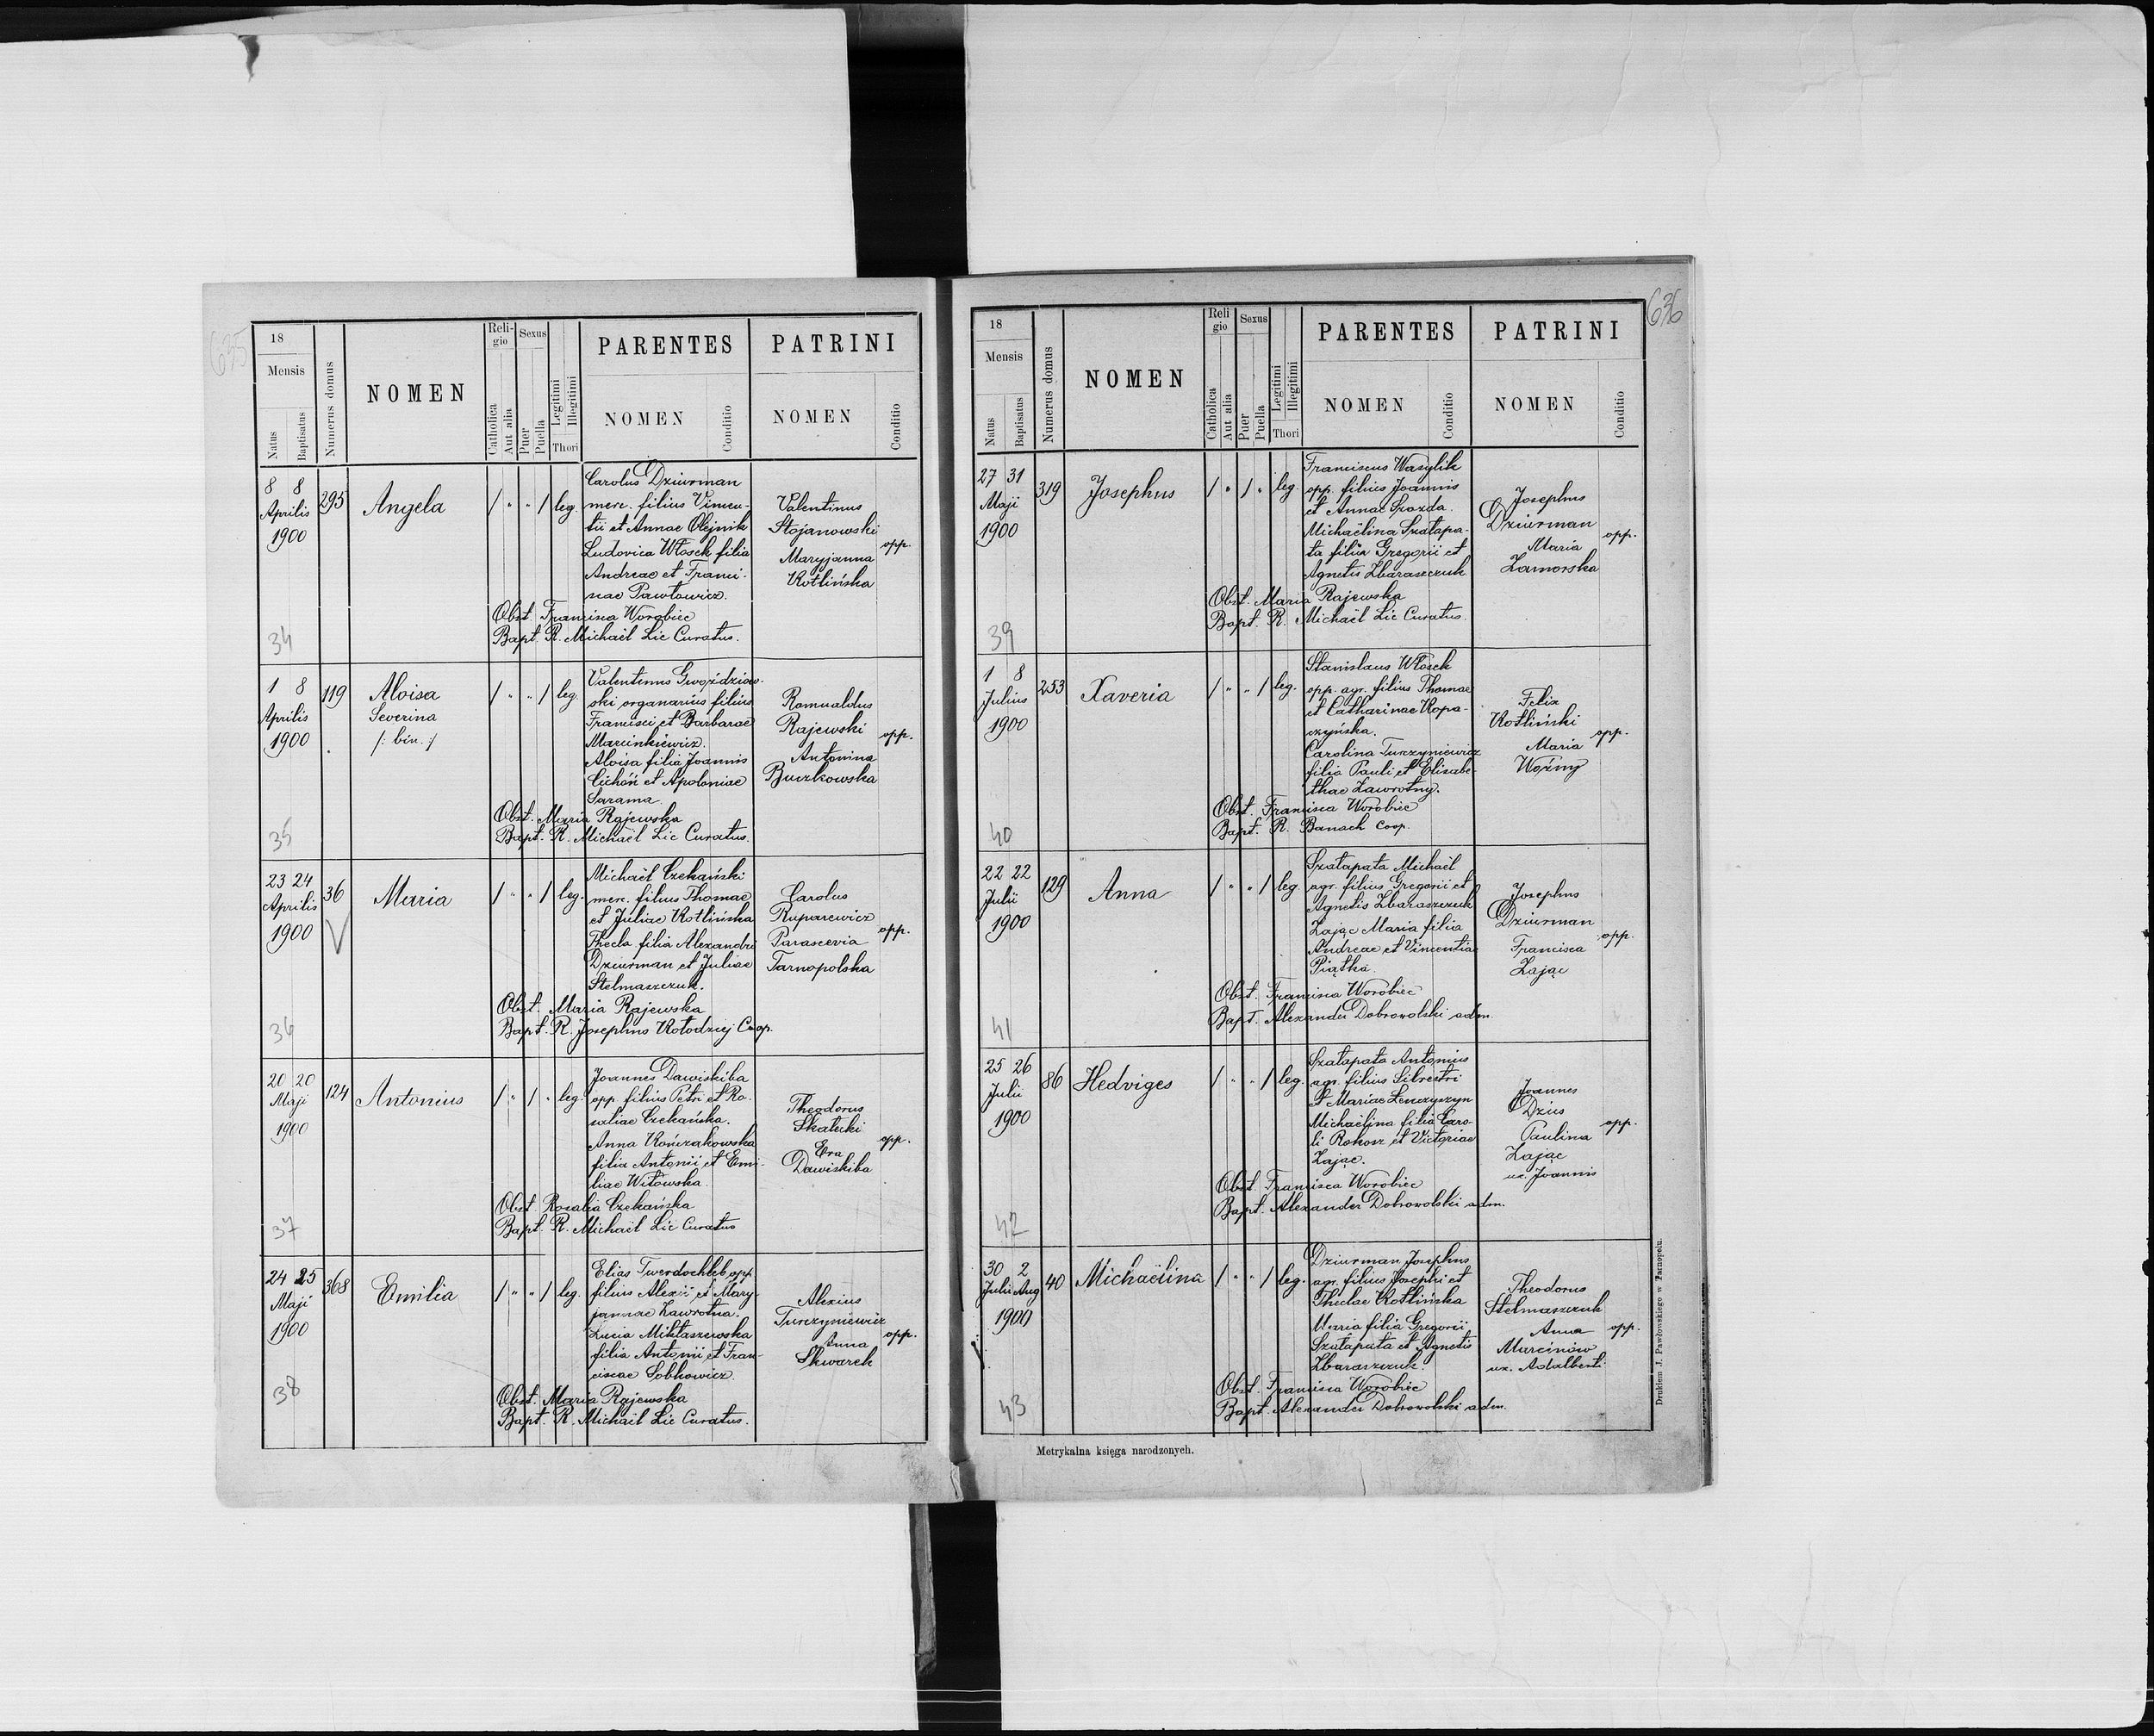 635
18
Mensis
Natus
Baptisatus
Numerus domus
NOMEN
Reli-
gio
Catholica
Aut alia
Sexus
Puer
Puella
Legitimi
Illegitimi
Thori
PARENTES
NOMEN
Conditio
PATRINI
NOMEN
Conditio
8 8
Aprilis
1900
295
Angela
/ " " / leg.
Carolus Dziurman
merc. filius Vincen-
tii et Annae Olejnik
Ludovica Włosek filia
Andreae et Franci-
nae Pawłowicz.
Valentinus
Stojanowski
Maryjanna
Kotlińska
opp.
Obst. Francisca Worobiec
Bapt. R. Michaël Lic Curatus.
34
1 8
Aprilis
1900
119
Aloisa
Severina
/: bin. :/
/ " " / leg.
Valentinus Gwoździow-
ski organarius filius
Francisci et Barbarae
Marcinkiewicz.
Aloisa filia Joannis
Cichoń et Apoloniae
Sarama.
Romualdus
Rajewski
Antonina
Buczkowska
opp.
Obst. Maria Rajewska
Bapt. R. Michaël Lic Curatus.
35
23 24
Aprilis
1900
36
Maria
/ " " / leg.
Michaël Czekański
merc. filius Thomae
et Juliae Kotlińska
Thecla filia Alexandri
Dziurman et Juliae
Stelmaszczuk.
Carolus
Ruparewicz
Parascevia
Tarnopolska
opp.
Obst. Maria Rajewska
Bapt. R. Josephus Kołodziej Coop.
36
20 20
Maji
1900
124
Antonius
/ " / " leg.
Joannes Dawiskiba
opp. filius Petri et Ro-
saliae Czekańska.
Anna Kończakowska
filia Antonii et Emi-
liae Witowska.
Theodorus
Skałecki
Eva
Dawiskiba
opp.
Obst. Rosalia Czekańska
Bapt. R. Michaël Lic Curatus
37
24 25
Maji
1900
368
Emilia
/ " " / leg.
Elias Twerdochleb opp.
filius Alexii et Mary-
jannae Zawrotna.
Lucia Miklaszewska
filia Antonii et Fran-
ciscae Sobkowicz.
Alexius
Turczyniewicz
Anna
Skwarek
opp.
Obst. Maria Rajewska
Bapt. R. Michaël Lic Curatus.
38
636
18
Mensis
Natus
Baptisatus
Numerus domus
NOMEN
Reli
gio
Catholica
Aut alia
Sexus
Puer
Puella
Legitimi
Illegitimi
Thori
PARENTES
NOMEN
Conditio
PATRINI
NOMEN
Conditio
27 31
Maji
1900
319
Josephus
/ " / " leg.
Franciscus Wasylik
opp. filius Joannis
et Annae
Michaëlina Szałapa-
ta filia Gregorii et
Agnetis Zbaraszczuk
Josephus
Dziurman
Maria
Zamorska
opp.
Obst. Maria Rajewska
Bapt. R. Michaël Lic Curatus.
39
1 8
Julius
1900
253
Xaveria
/ " " / leg.
Stanislaus Włosek
opp. agr. filius Thomae
et Catharinae Kopa-
czyńska.
Carolina Turczyniewicz
filia Pauli et Elisabe-
thae Zawrotny.
Felix
Kotliński
Maria
Woźny
opp.
Obst. Francisca Worobiec
Bapt. R. Banach Coop.
40
22 22
Julii
1900
129
Anna
/ " " / leg.
Szałapata Michaël
agr. filius Gregorii et
Agnetis Zbaraszczuk
Zając Maria filia
Andreae et Vincentiae
Piątka.
Josephus
Dziurman
Francisca
Zając
opp.
Obst. Francisca Worobiec
Bapt. Alexander Dobrowolski adm.
41
25 26
Julii
1900
86
Hedviges
/ " " / leg.
Szałapata Antonius
agr. filius Silvestri
et Mariae Lenczyszyn
Michaëlina filia Caro-
li Rokosz et Victoriae
Zając.
Joannes
Dzius
Paulina
Zając
ux. Joannis
opp.
Obst. Francisca Worobiec
Bapt. Alexander Dobrowolski adm.
42
30 2
Julii Aug
1900
40
Michaëlina
/ " " / leg.
Dziurman Josephus
agr. filius Josephi et
Theclae Kotlińska
Maria filia Gregorii
Szałapata et Agnetis
Zbaraszczuk.
Theodorus
Stelmaszczuk
Anna
Marcinów
ux. Adalberti
opp.
Obst. Francisca Worobiec
Bapt. Alexander Dobrowolski adm.
43
Metrykalna księga narodzonych.
Drukiem J. Pawłowskiego w Tarnopolu.